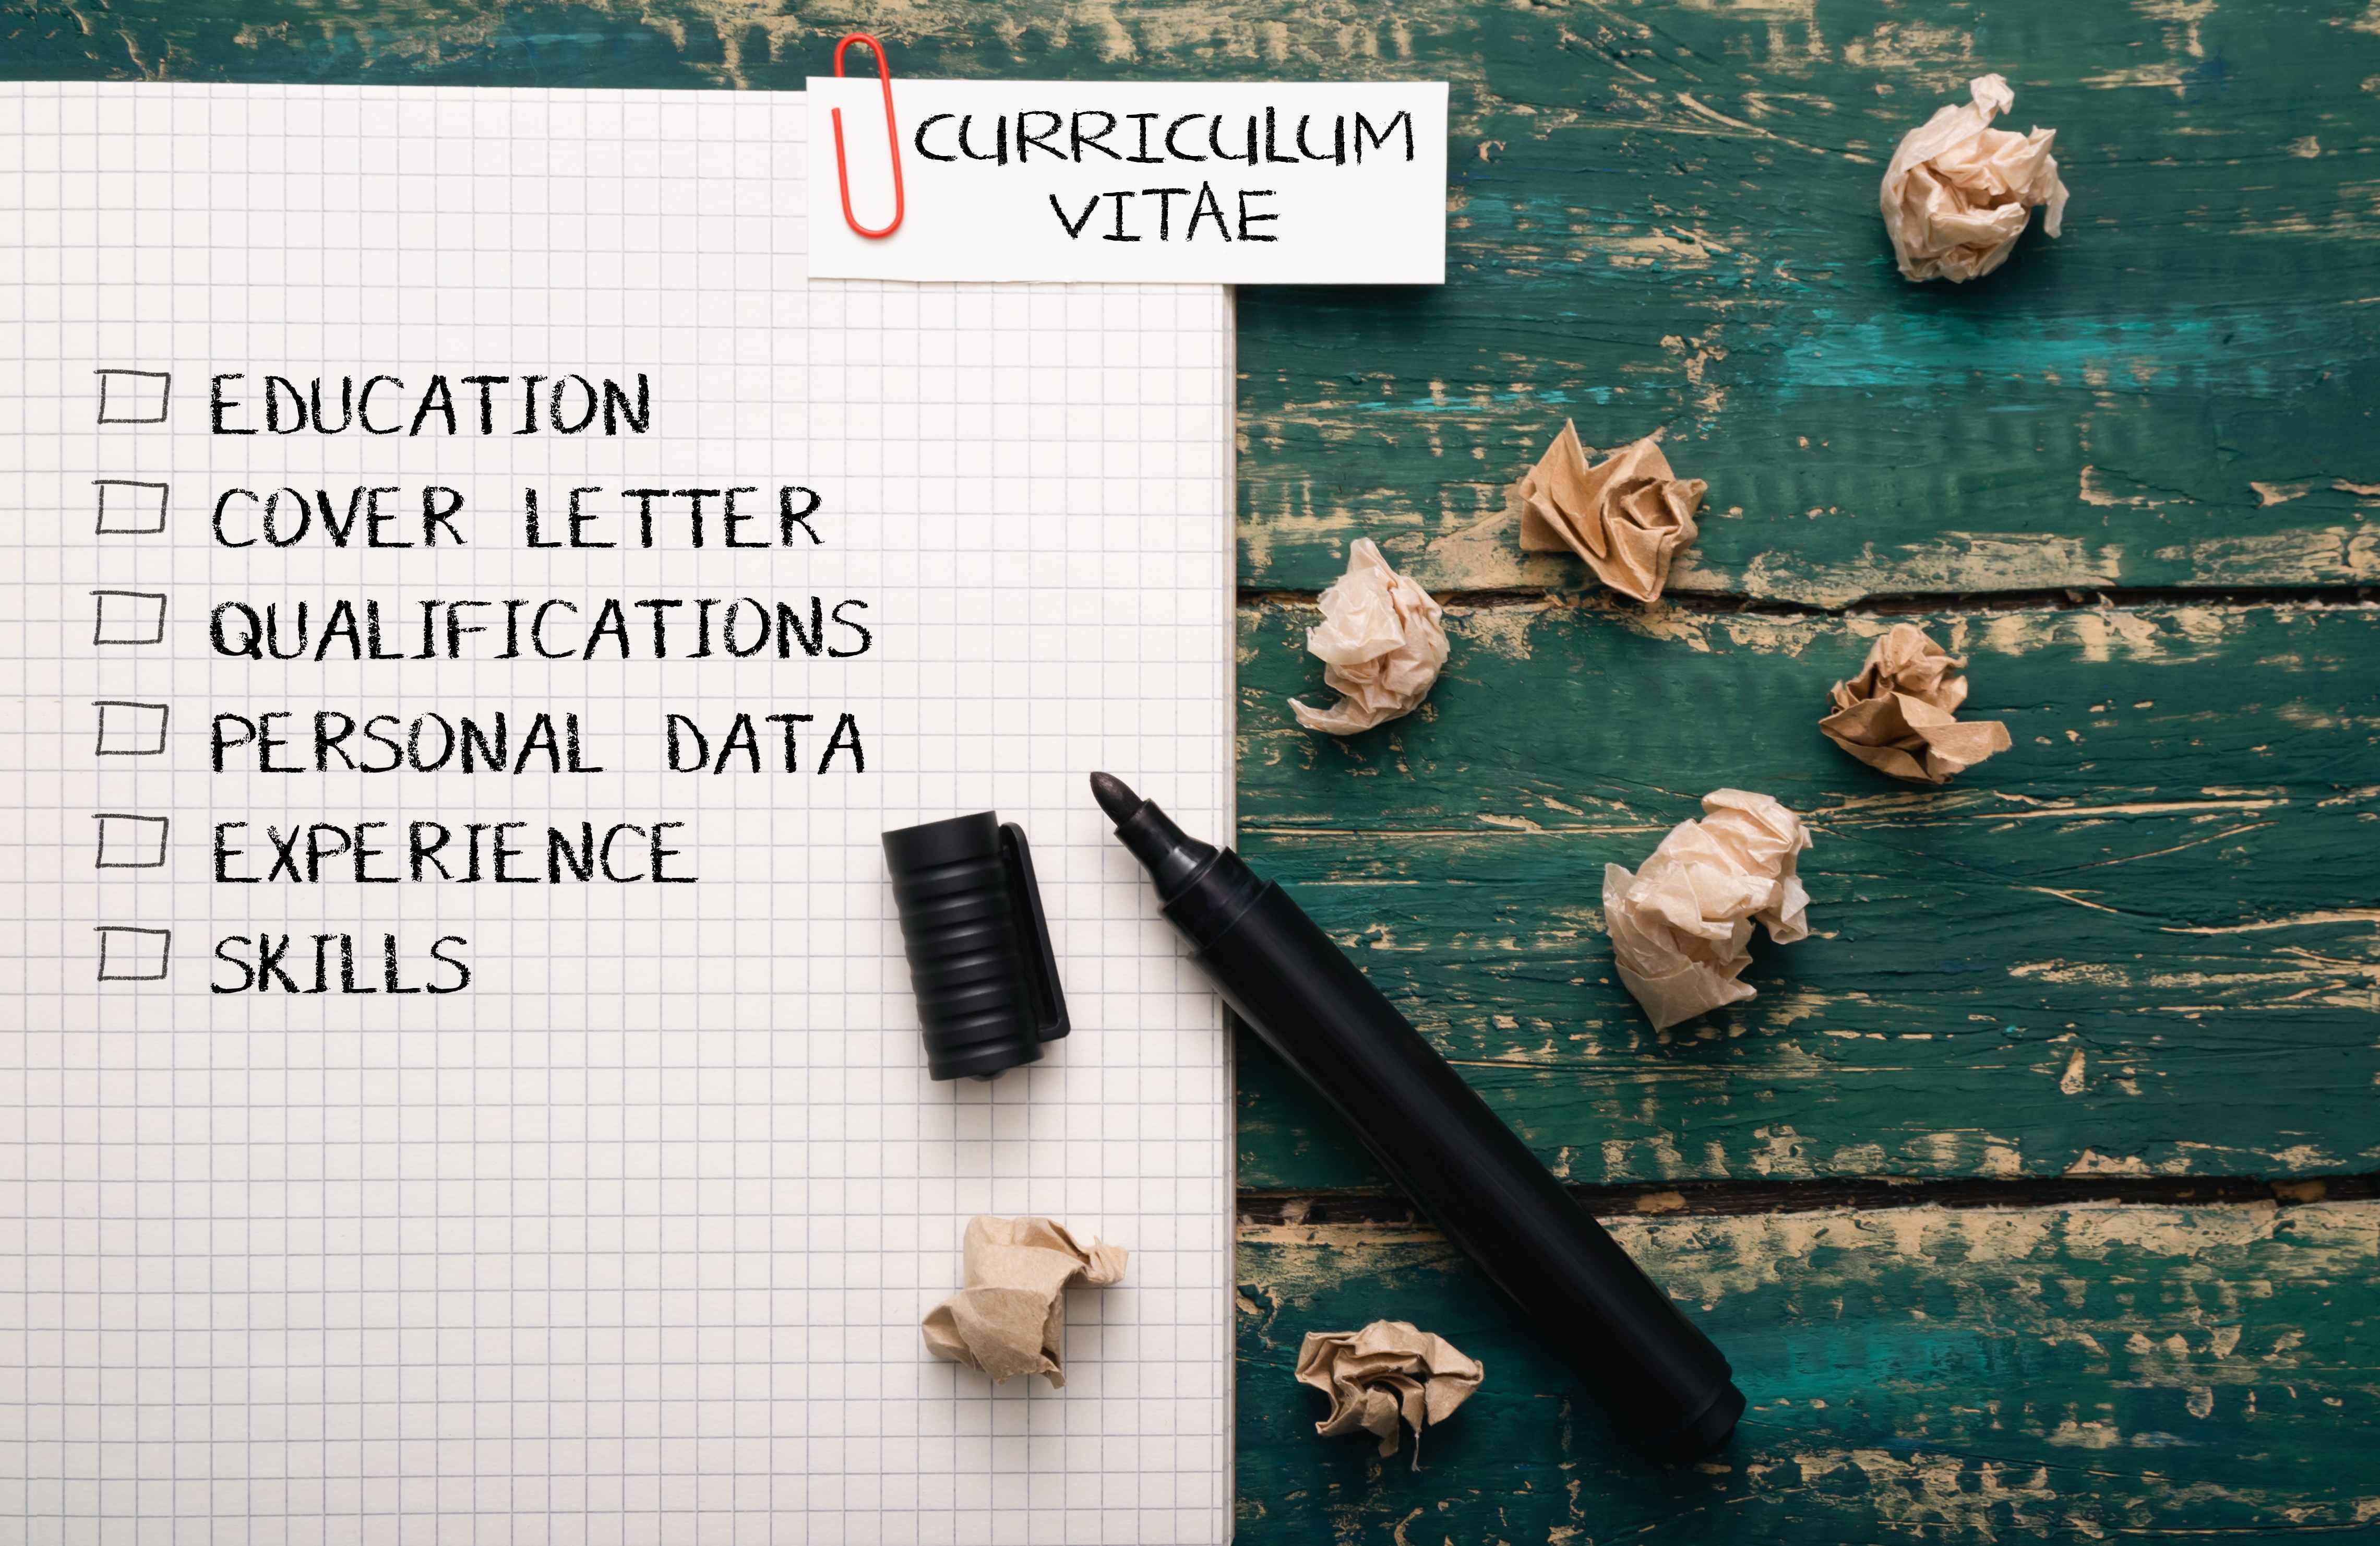 CURRICULUM
VITAE
EDUCATION
COVER LETTER
QUALIFICATIONS
PERSONAL DATA
EXPERIENCE
SKILLS